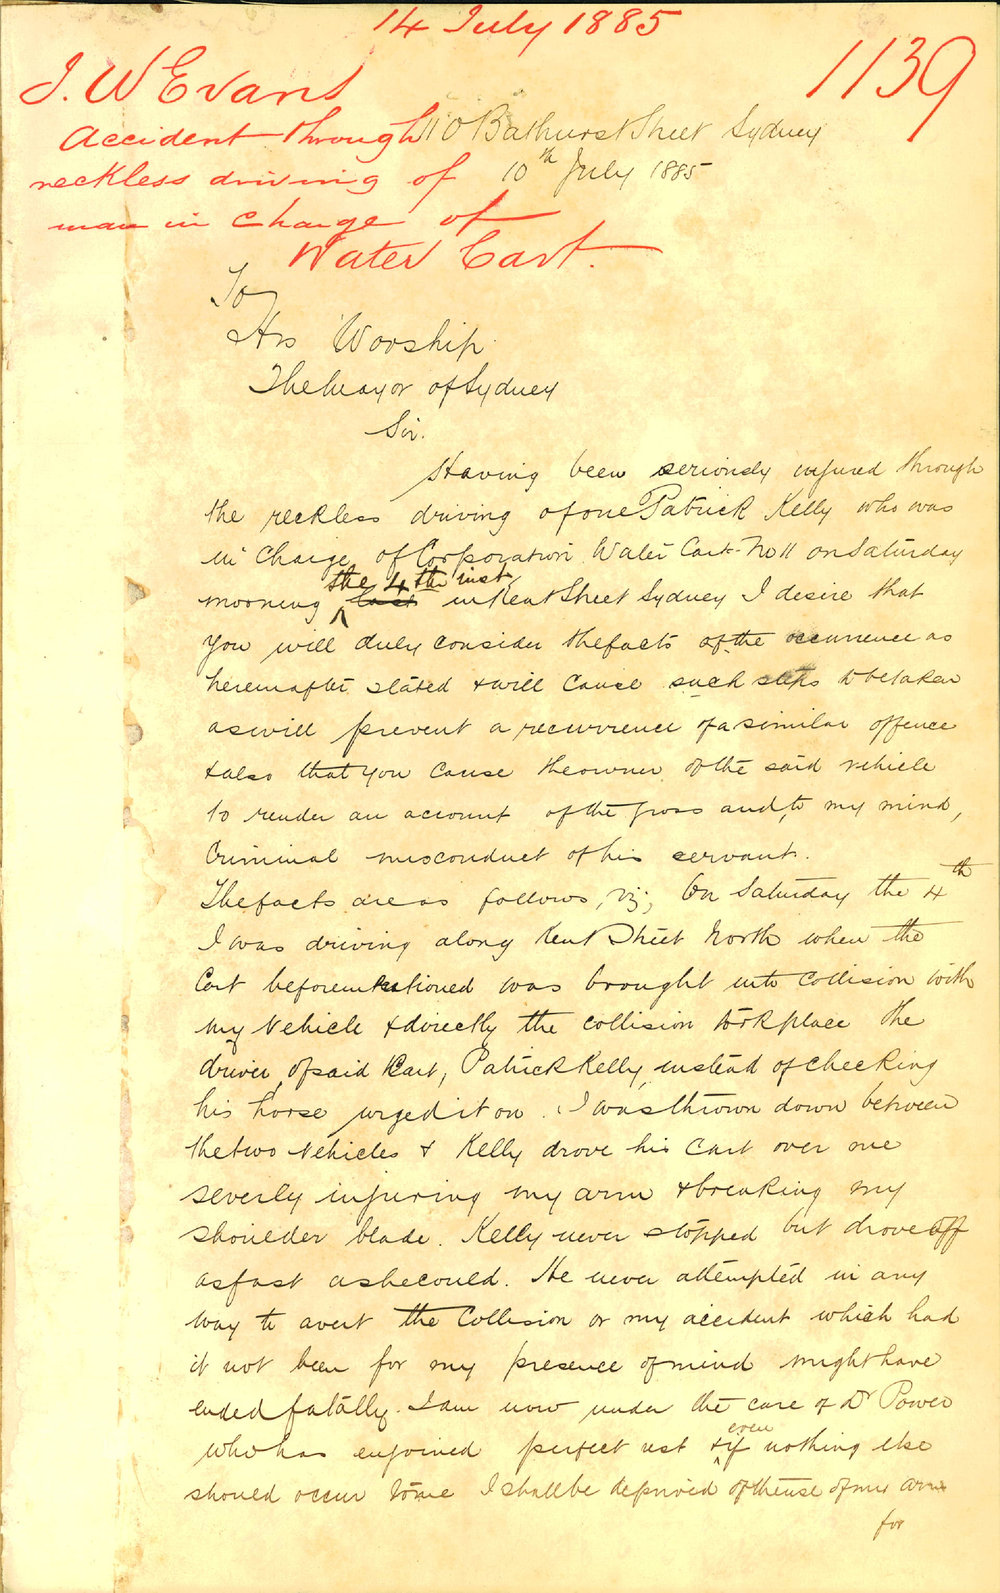 14 July 1885
1139
J. W Evans
Accident through
reckless driving of
man in charge of
Water Cart.
110 Bathurst Street Sydney
10th July 1885
To
His Worship
The Mayor of Sydney
Sir.
Having been seriously injured through
the reckless driving of one Patrick Kelly who was
in Charge of Corporation Water Cart No 11 on Saturday
morning the 4th inst last in Kent Street Sydney I desire that
you will duly consider the facts of the occurrence as
hereinafter stated & will cause such steps to be taken
as will prevent a recurrence of a similar offence
& also that you cause the owner of the said vehicle
to render an account of the gross and, to my mind,
Criminal misconduct of his servant.
The facts are as follows, viz; On Saturday the 4th
I was driving along Kent Street North when the
Cart beforementioned was brought into Collision with
my vehicle & directly the collision took place the
driver of said Cart, Patrick Kelly, instead of checking
his horse urged it on. I was thrown down between
the two vehicles & Kelly drove his Cart over me
severly injuring my arm & breaking my
shoulder blade. Kelly never stopped but drove off
as fast as he could. He never attempted in any
way to avert the Collision or my accident which had
it not been for my presence of mind might have
ended fatally. I am now under the care of Dr Power
who has enjoined perfect rest & even if nothing else
should occur to me I shall be deprived of the use of my arm
for